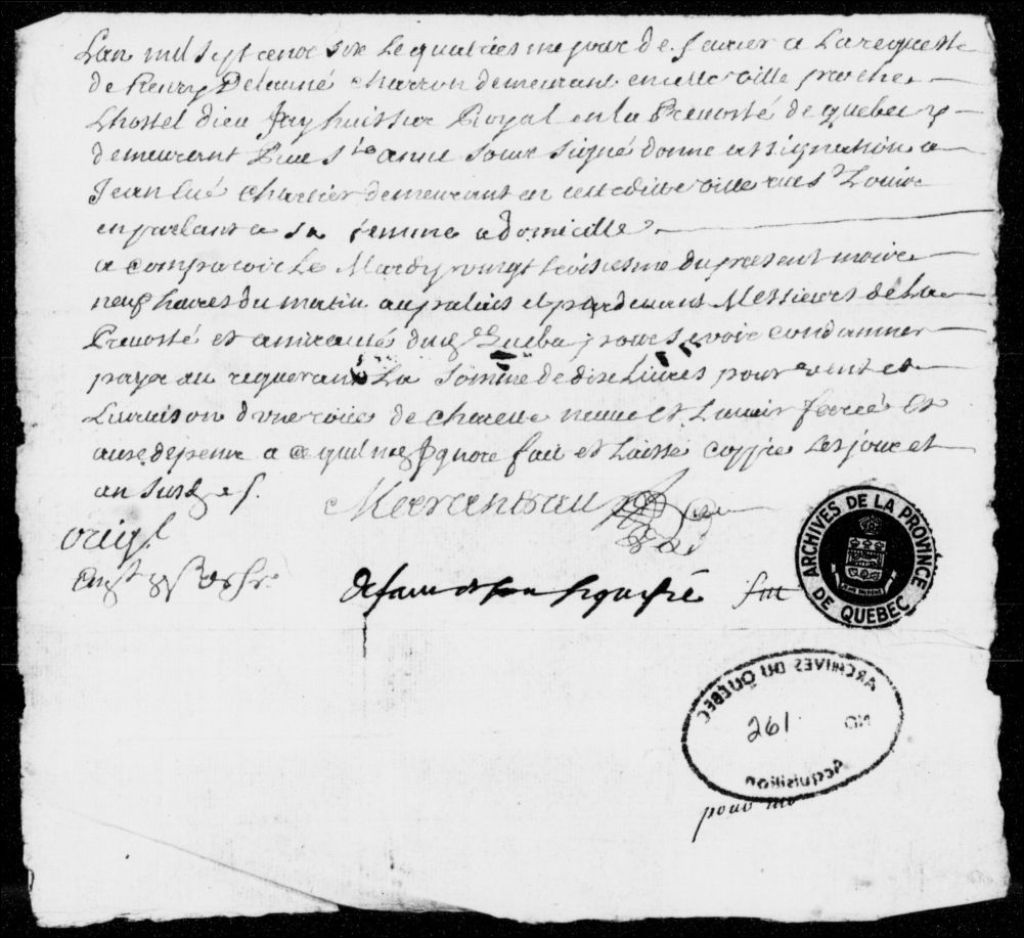 Lan mil sept cent six Le quatries me jour de fevrier a La requeste
de henry Delauné charron demeurant en cette ville proche
Lhostel dieu Jay huissier Royal en la Prevosté de quebec y
demeurant Rue Ste anne soubz signé donné assignation a
Jean charlier demeurant en cette ditte ville rue St Louis
en parlant a sa femme a domicille
a comparoir Le Mardy vingt troisiesme du present mois
neuf heures du matin au palais et pardevant Messieurs de La
Prevosté et amirauté dud Quebec pour se voir condamner
payer au requerant La somme de dix Livres pour vente et
Livraison d'une roue de charette neuve et Lavoir ferrée et
aux depens a ce quil nen Ignore fait et Laissé coppie Les jour et
an susd
Marandeau
origl
defaut et son signifié fait
ARCHIVES DE LA PROVINCE DE QUEBEC
ARCHIVES DU QUÉBEC
NO 261
Acquisition
pour